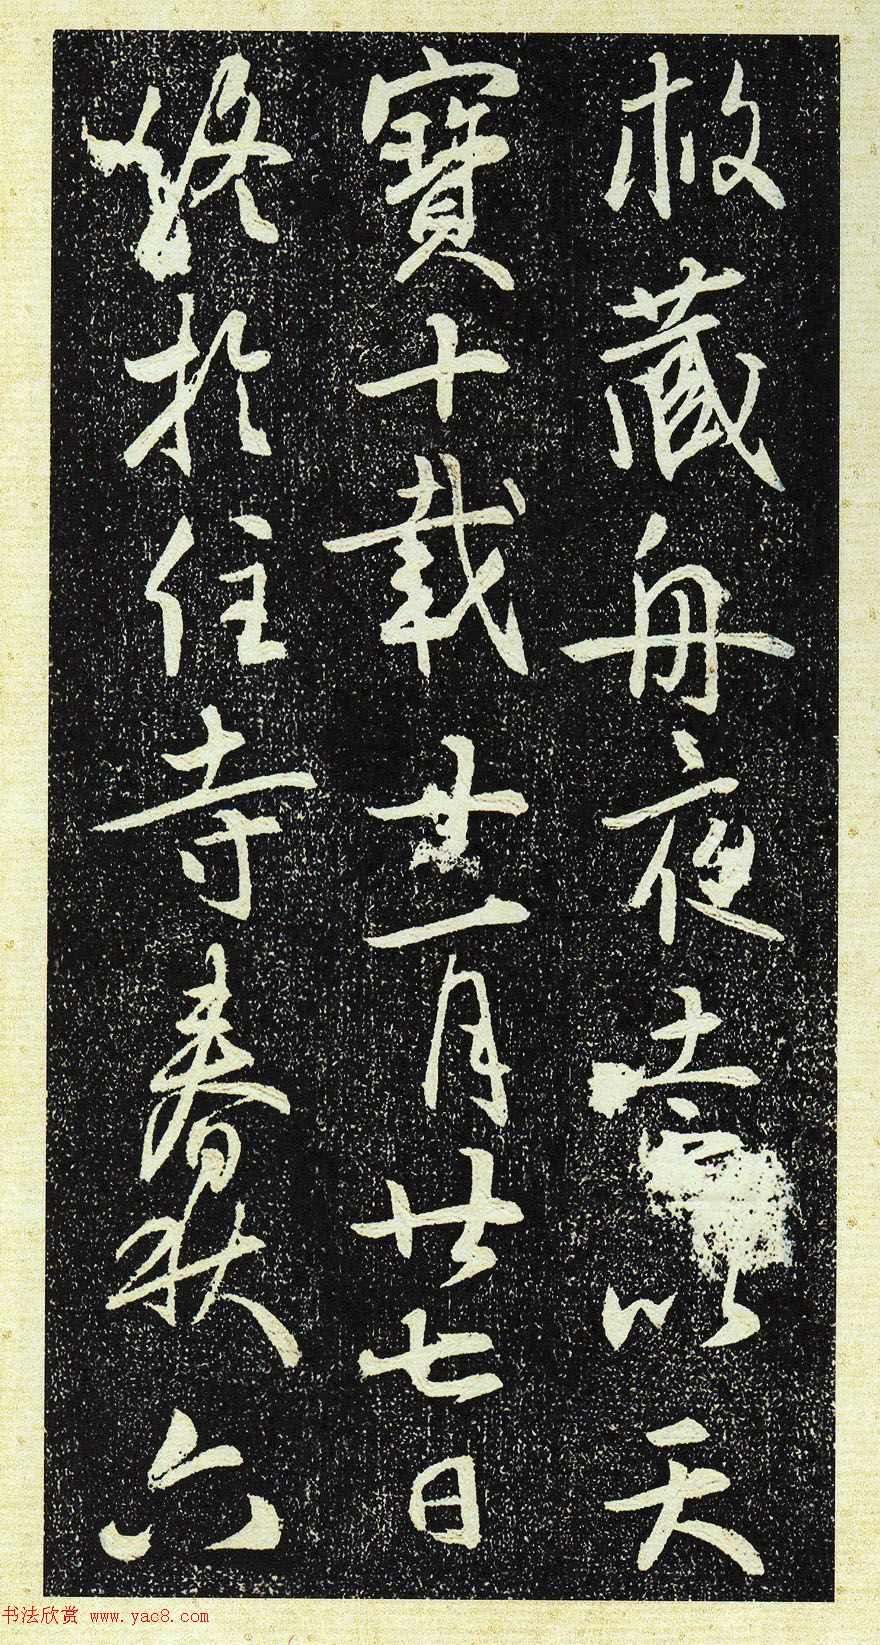 藏舟夜去以天
寶十載一月廿七日
終於住寺春秋六
书法欣赏 www.yac8.com